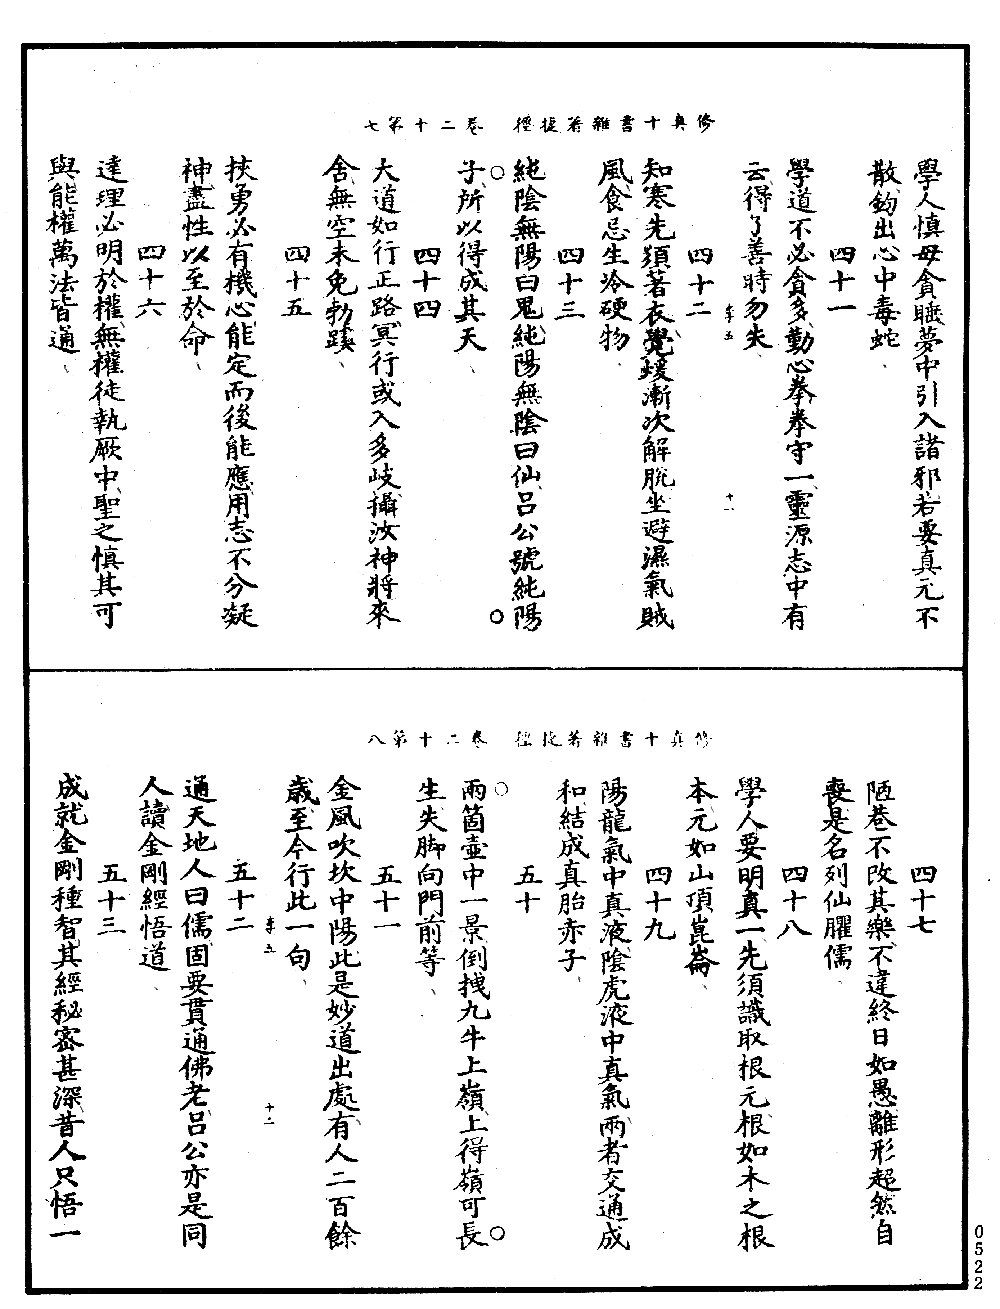 修真十書雜著捷徑　卷二十第七
學人慎毋貪睡夢中引入諸邪若要真元不
散鈎出心中毒蛇
四十一
學道不必貪多勤心拳拳守一靈源志中有
云得了善時勿失
李五
十一
四十二
知寒先須著衣覺煖漸次解脫坐避濕氣賊
風食忌生冷硬物
四十三
純陰無陽曰鬼純陽無陰曰仙呂公號純陽
子所以得成其天
四十四
大道如行正路冥行或入多岐攝汝神將來
舍無空未免勃蹊
四十五
挾勇必有機心能定而後能應用志不分凝
神盡性以至於命
四十六
達理必明於權無權徒執厥中聖之慎其可
與能權萬法皆通
修真十書雜著捷徑　卷二十第八
四十七
陋巷不改其樂不違終日如愚離形超然自
喪是名列仙臞儒
四十八
學人要明真一先須識取根元根如木之根
本元如山頂崑崙
四十九
陽龍氣中真液陰虎液中真氣兩者交通成
和結成真胎赤子
五十
兩箇壺中一景倒拽九牛上嶺上得嶺可長
生失脚向門前等
五十一
金風吹坎中陽此是妙道出處有人二百餘
歲至今行此一句
李五
十二
五十二
通天地人曰儒固要貫通佛老呂公亦是同
人讀金剛經悟道
五十三
成就金剛種智其經秘密甚深昔人只悟一
0522